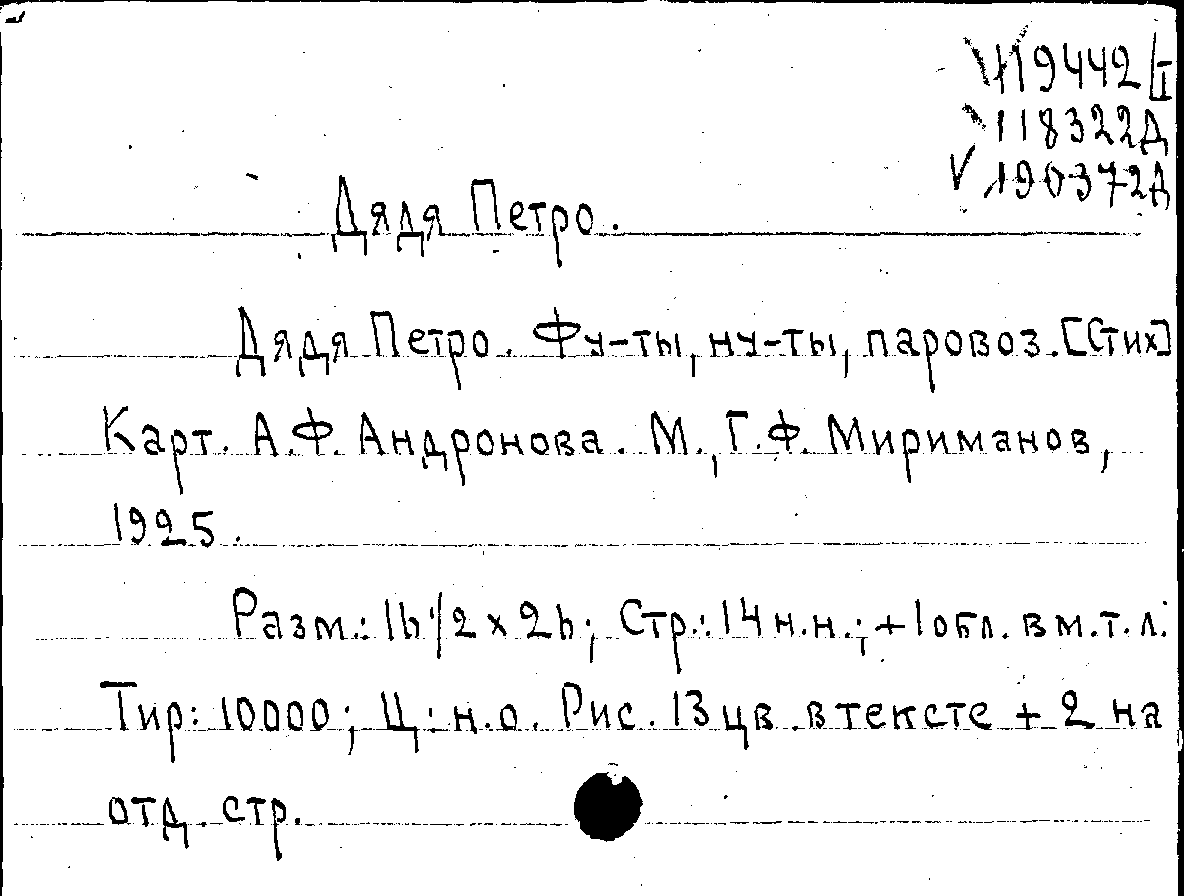 119442/I
118322Д
190372Д
Дядя Петро.
Дядя Петро. Фу-ты, ну-ты, паровоз. [Стих]
Карт. А.Ф. Андронова. М., Г.Ф. Мириманов,
1925.
Разм.: 16 1/2 x 26; Стр.: 14 н.н.; + 1 обл. в м.т.л.
Тир: 10000; Ц: н.о. Рис. 13 цв. в тексте + 2 на
отд. стр.